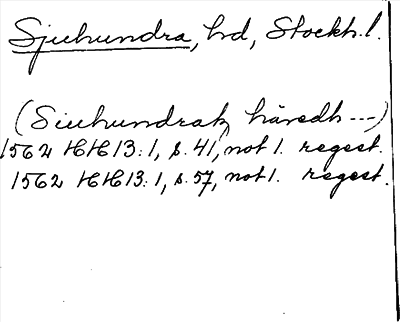 Sjuhundra, hd, Stockh. l.
(Siuhundratz häredh ---)
1562 HH 13: 1, s. 41, not 1. regest.
1562 HH 13: 1, s. 57, not 1. regest.